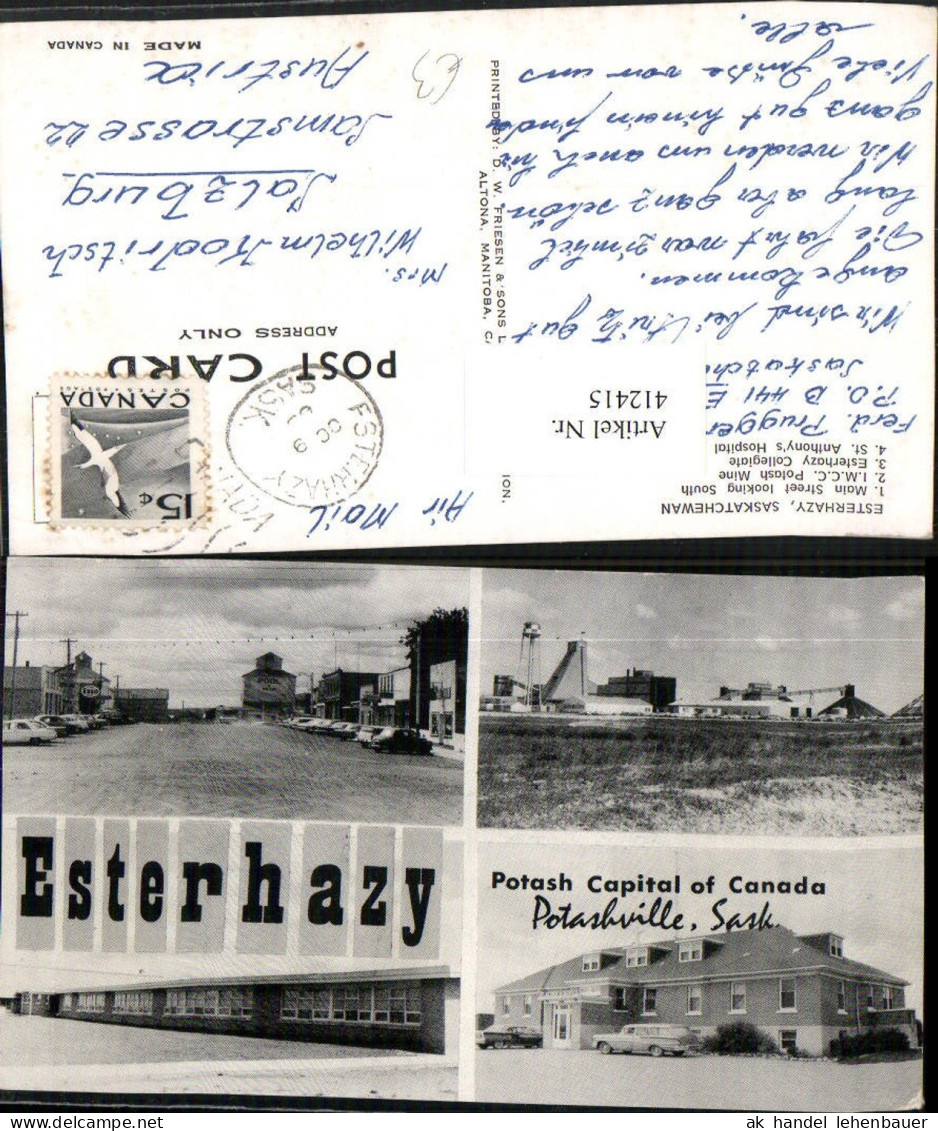 ESTERHAZY, SASKATCHEWAN
1. Main Street looking South
2. I.M.C.C. Potash Mine
3. Esterhazy Collegiate
4. St. Anthony's Hospital
Ferd. Prugger
P.O. B 441 E
Saskatche
Wir sind bei gut
angekommen.
Die fahrt war ziemlich
lang aber ganz schön.
Wir werden uns auch hir
ganz gut hinein finden
Viele Grüsse von uns
alle.
PRINTED BY: D. W. FRIESEN & SONS L
ALTONA, MANITOBA, CA
ION.
Artikel Nr.
412415
Air Mail
CANADA
POSTES POSTAGE
15¢
ESTERHAZY
SASK.
POST CARD
ADDRESS ONLY
Mrs.
Wilhelm Kodritsch
Salzburg
Samstrasse 22
Austria
€3
MADE IN CANADA
POOL
ESSO
Esterhazy
Potash Capital of Canada
Potashville, Sask.
ak handel lehenbauer